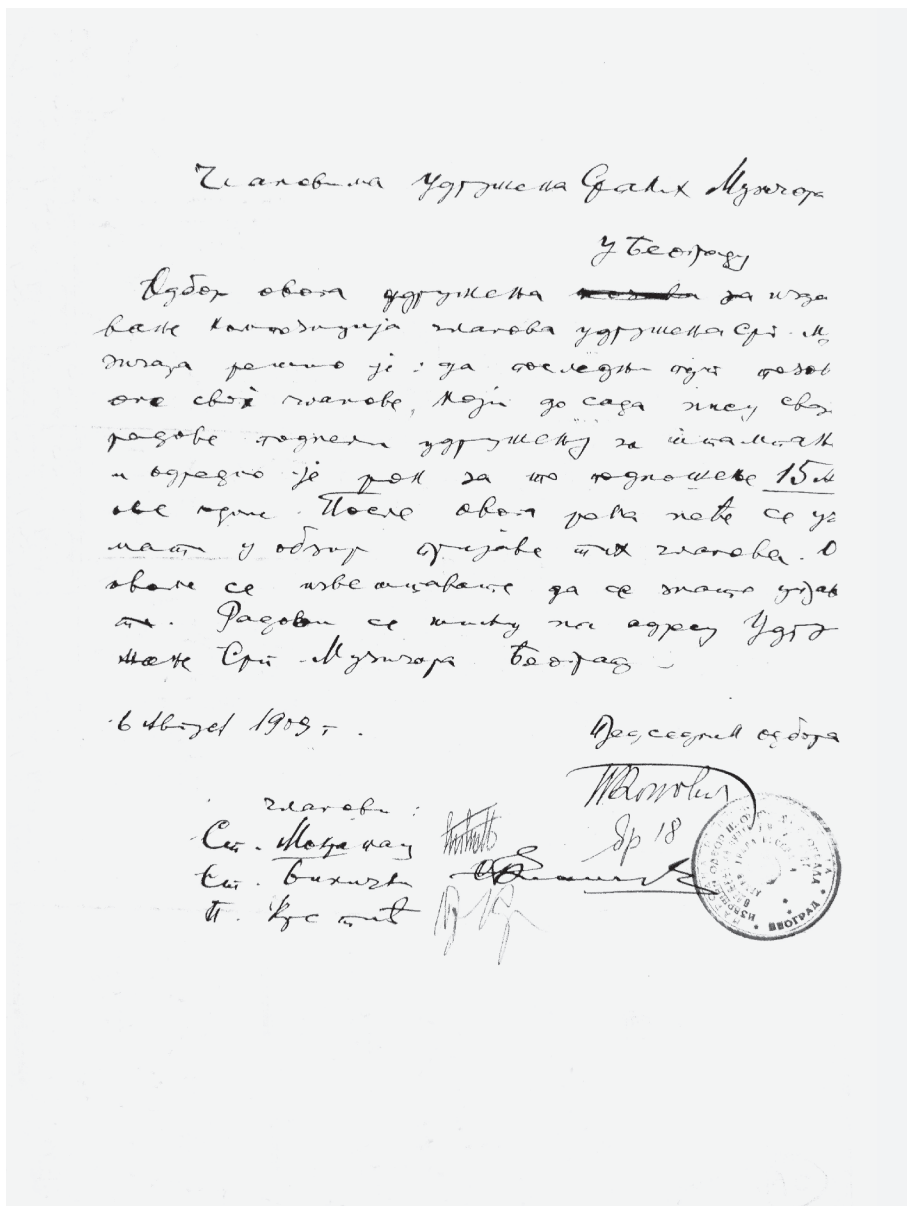 Члановима Удружена Српских Музичара
у Београду
Одбор овога удружења за изда
вање композиција чланова удружења Срп. Му
зичара решио је: да последњи пут позове
оне своје чланове, који до сада нису своје
радове поднели удружењу за штампање
и одредио је рок за то подношење 15
ове године. После овога рока неће се уз
мати у обзир пријаве тих чланова. О
овоме се извештавате да се знате управља
ти. Радови се шиљу на адресу Удру
жење Срп. Музичара Београд
6 Август 1909 г.
Председник одбора
чланови:
Бр 18
Ст. Мокрањац
Ст. Бинички
П. Крстић
БЕОГРАД